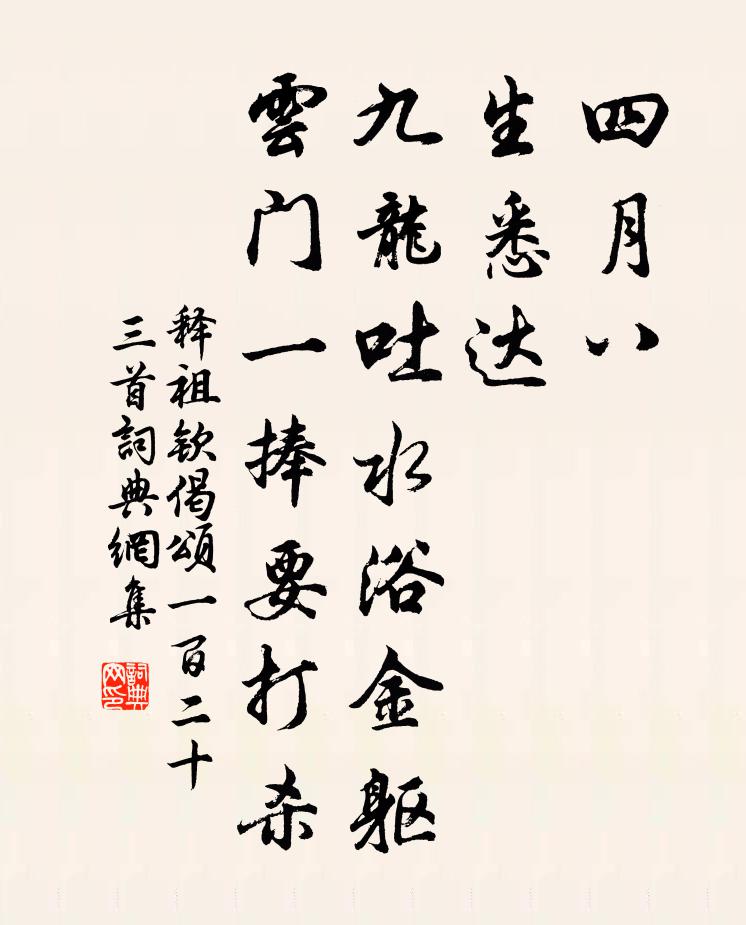 四月八
生悉达
九龍吐水浴金躯
雲门一捧要打杀
释祖钦偈頌一百二十
三首詞典網集
詞典网印